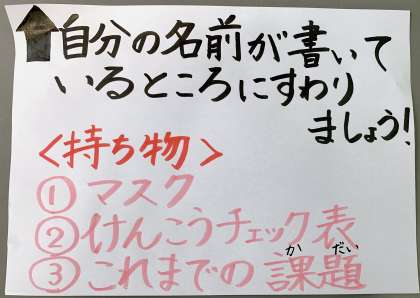 ⬆自分の名前が書いて
いるところにすわり
ましょう!
<持ち物>
①マスク
②けんこうチェック表
かだい
③これまでの課題